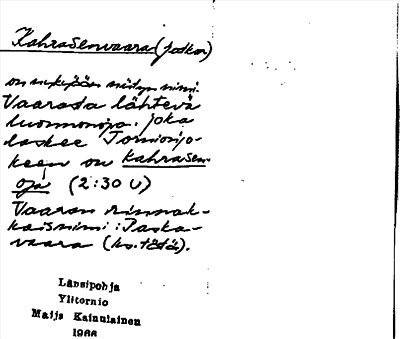 Kahrasenvaara (jatkoa)
on nykyään niityn nimi.
Vaarasta lähtevä
luonnonoja, joka
laskee Tornionjo-
keen on Kahrasen-
oja (2:30 U)
Vaaran rinnak-
kaisnimi: Paska-
vaara (ks. tätä).
Länsipohja
Ylitornio
Maija Kainulainen
1966